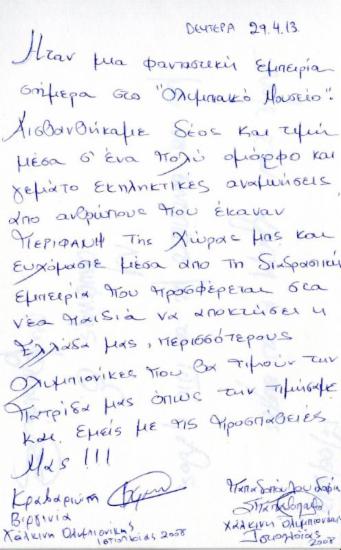 ΔΕΥΤΕΡΑ 29.4.13
Ήταν μια φανταστική εμπειρία
σήμερα στο "Ολυμπιακό Μουσείο".
Αισθανθήκαμε δέος και τιμή
μέσα σ' ένα πολύ όμορφο και
γεμάτο εκπληκτικές αναμνήσεις
από ανθρώπους που έκαναν
ΠΕΡΙΦΑΝΗ της χώρας μας και
ευχόμαστε μέσα από τη διαδραστική
εμπειρία που προσφέρεται στα
νέα παιδιά να αποκτήσει η
Ελλάδα μας, περισσότερους
Ολυμπιονίκες που θα τιμούν την
Πατρίδα μας όπως την τιμήσαμε
και εμείς με τις προσπάθειές
Μας!!!
Κραβαριώτη
Βιργινία
Χάλκινη Ολυμπιονίκης
Ιστιοπλοΐας 2008
Παπαδοπούλου Σοφία
Χάλκινη Ολυμπιονίκης
Ιστιοπλοΐας
2008